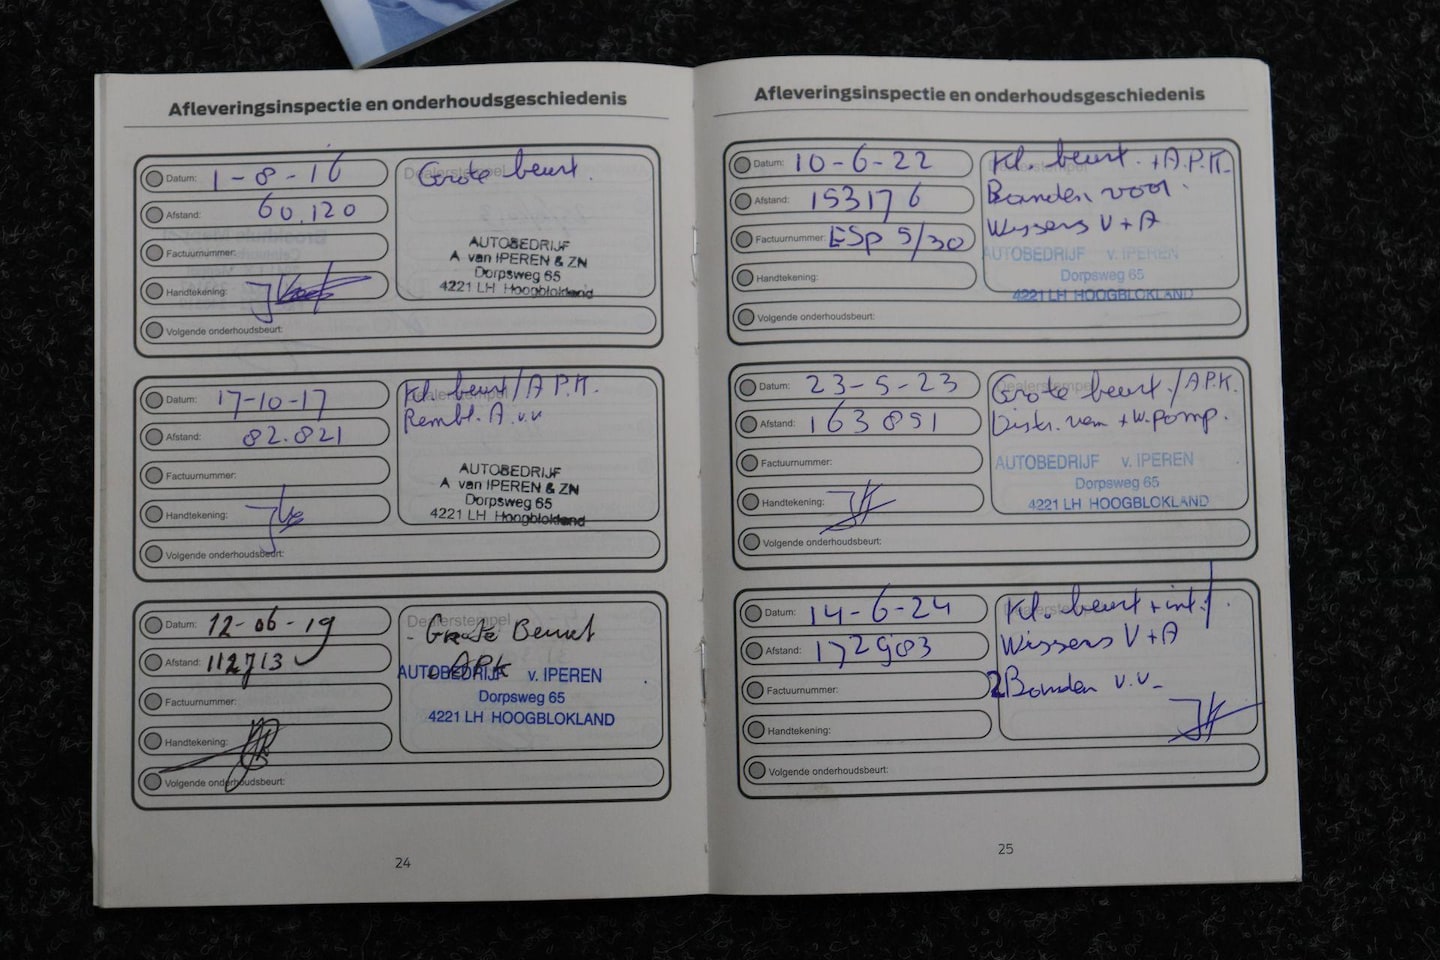 Afleveringsinspectie en onderhoudsgeschiedenis
Datum: 1-8-16
Afstand: 60.120
Factuurnummer:
Handtekening:
Volgende onderhoudsbeurt:
Dealerstempel
Grote beurt.
AUTOBEDRIJF
A van IPEREN & ZN
Dorpsweg 65
4221 LH Hoogblokland
Datum: 17-10-17
Afstand: 82.821
Factuurnummer:
Handtekening:
Volgende onderhoudsbeurt:
Dealerstempel
Kl. beurt/A.P.K.
Rembl. A. v.v
AUTOBEDRIJF
A van IPEREN & ZN
Dorpsweg 65
4221 LH Hoogblokland
Datum: 12-06-19
Afstand: 112713
Factuurnummer:
Handtekening:
Volgende onderhoudsbeurt:
Dealerstempel
- Grote Beurt
- APK
AUTOBEDRIJF v. IPEREN
Dorpsweg 65
4221 LH HOOGBLOKLAND
24
Afleveringsinspectie en onderhoudsgeschiedenis
Datum: 10-6-22
Afstand: 153176
Factuurnummer: ESP 5/30
Handtekening:
Volgende onderhoudsbeurt:
Dealerstempel
Kl. beurt. + A.P.K.
Banden voor.
Wissers V+A
AUTOBEDRIJF v. IPEREN
Dorpsweg 65
4221 LH HOOGBLOKLAND
Datum: 23-5-23
Afstand: 163851
Factuurnummer:
Handtekening:
Volgende onderhoudsbeurt:
Dealerstempel
Grote beurt./APK.
Distr. riem + W.pomp.
AUTOBEDRIJF v. IPEREN
Dorpsweg 65
4221 LH HOOGBLOKLAND
Datum: 14-6-24
Afstand: 172903
Factuurnummer:
Handtekening:
Volgende onderhoudsbeurt:
Dealerstempel
Kl. beurt + int.
Wissers V+A
2 Banden v.v.
25